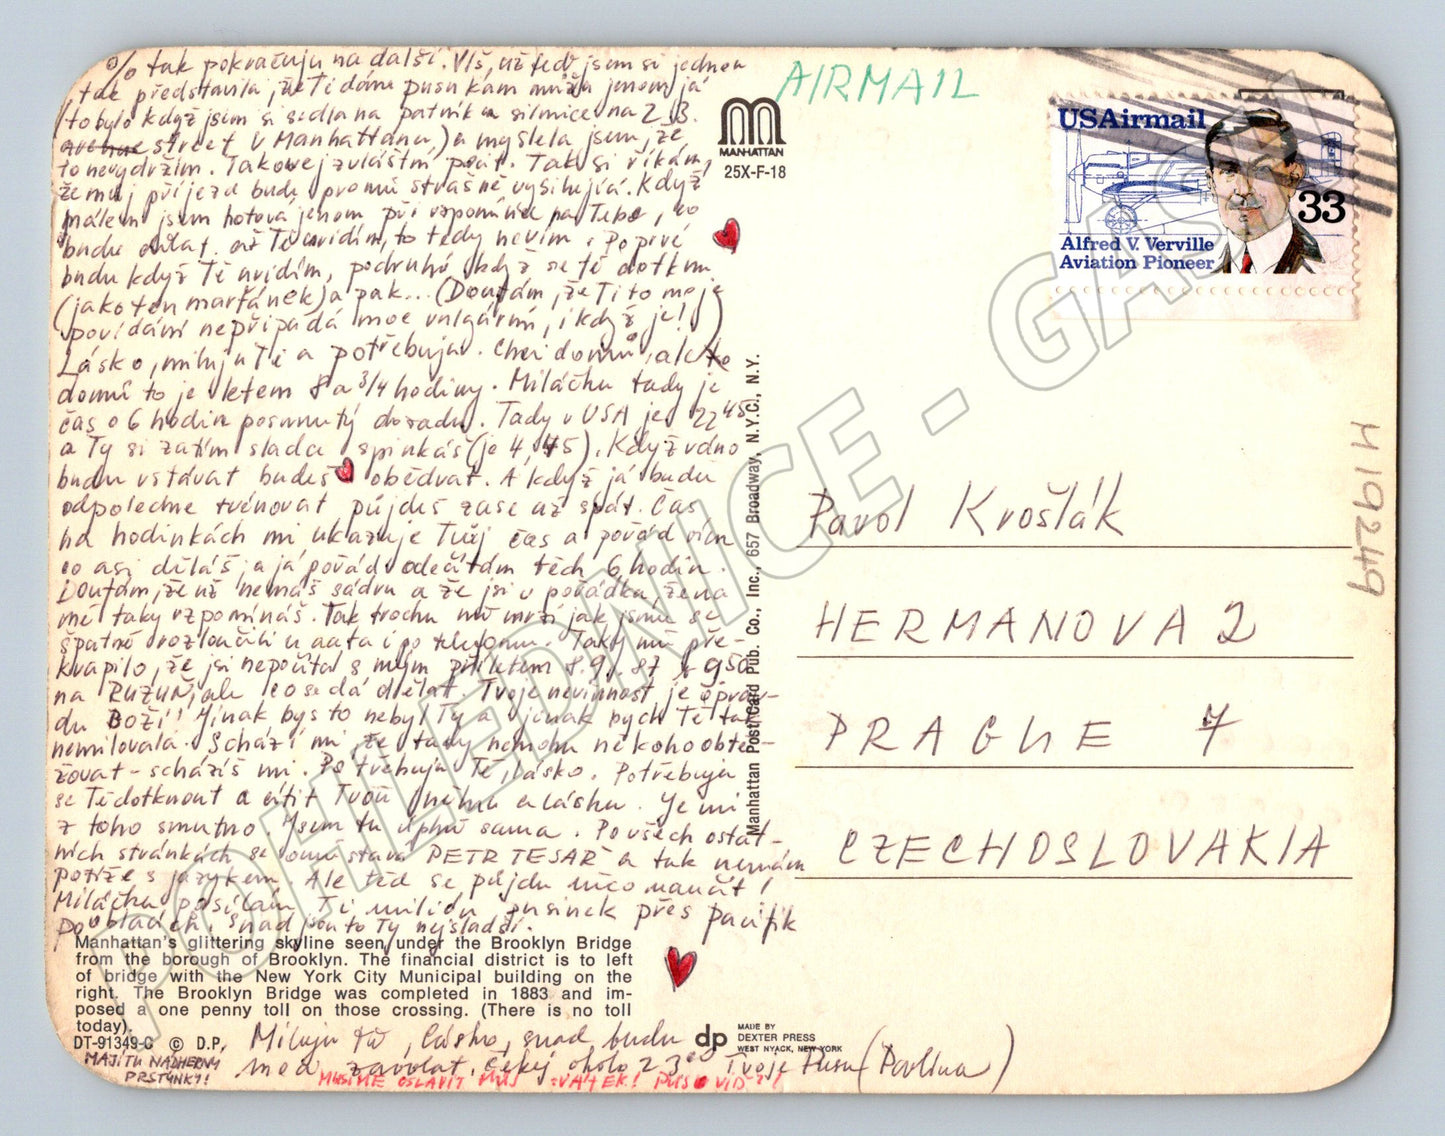 % tak pokračuju na další. Víš, už teď jsem si jednou
tak představila, že Ti dám pusu kám můžu jenom já
to bylo když jsem si sedla na patník u silnice na 23.
street v Manhattanu,) a myslela jsem, že
to nevydržím. Takovej zvláštní pocit. Tak si říkám,
že můj příjezd bude promě strašně vysilující. Když
málem jsem hotová jenom při vzpomínce na Tebe, co
budu dělat, až Tě uvidím, to tedy nevím. Poprvé
budu když Tě uvidím, podruhé když se tě dotknu
(jako ten marťánek) a pak... (Doufám, že Ti to moje
povídání nepřipadá moc vulgární, i když je!)
Lásko, miluju Ti a potřebuju. Chci domů, ale to
domů to je letem 8 a 3/4 hodiny. Miláčku tady je
čas o 6 hodin posunutý dozadu. Tady v USA je 22 45
a Ty si zatím sladce spinkáš (je 4,45). Když v dne
budu vstávat budeš obědvat. A když já budu
odpoledne trénovat půjdeš zase až spát. Čas
na hodinkách mi ukazuje Tvůj čas a pořád vím
co asi děláš, a já pořád odečítám těch 6 hodin.
Doufám, že už nemáš sádru a že jsi v pořádku, že na
mě taky vzpomínáš. Tak trochu mě mrzí jak jsme se
špatně rozloučili u auta i po telefonu. Taky mě pře-
kvapilo, že jsi nepočítal s mým příletem 8.9. 87 v 9 50
na RUZUŇ, ale co se dá dělat. Tvoje nevinnost je oprav-
du BOŽÍ! Jinak bys to nebyl Ty a jinak bych Tě tak
nemilovala. Schází mi že tady nemohu někoho obtě-
žovat - scházíš mi. Potřebuju Tě, Lásko. Potřebuju
se Tě dotknout a cítit Tvou něhu a lásku. Je mi
z toho smutno. Jsem tu úplně sama. Po všech ostat-
ních stránkách se o mě stará PETR TESAŘ a tak nemám
potíže s jazykem. Ale teď se půjdu něco naučit!
Miláčku posílám Ti milión pusinek přes pacifik
po oblacích, snad jsou to Ty nejsladší.
Manhattan's glittering skyline seen under the Brooklyn Bridge
from the borough of Brooklyn. The financial district is to left
of bridge with the New York City Municipal building on the
right. The Brooklyn Bridge was completed in 1883 and im-
posed a one penny toll on those crossing. (There is no toll
today).
DT-91349-C © D.P.
Miluju tě, lásko, snad budu
moci zavolat. Čekej okolo 23 00 Tvoje Pusu (Pavlína)
MAJÍ TU NÁDHERNÝ
PRSTÝNKY!
MUSÍME OSLAVIT
AIRMAIL
MANHATTAN
25X-F-18
USAirmail
33
Alfred V. Verville
Aviation Pioneer
Manhattan Post Card Pub. Co., Inc., 657 Broadway, N.Y.C., N.Y.
Pavol Krošlák
HERMANOVA 2
PRAGUE 7
CZECHOSLOVAKIA
H19249
dp
MADE BY
DEXTER PRESS
WEST NYACK, NEW YORK
POHLEDNICE - GASH